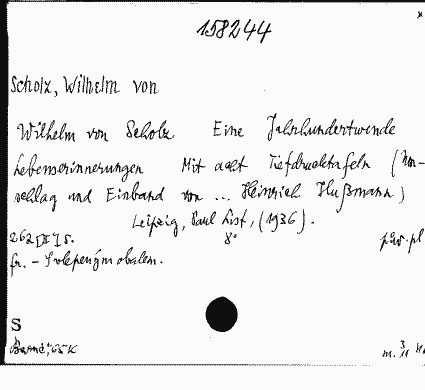 158244
Scholz, Wilhelm von
Wilhelm von Scholz Eine Jahrhundertwende
Lebenserinnerungen Mit acht Tiefdrucktafeln (Um-
schlag und Einband von ... Heinrich Hußmann)
Leipzig, Paul List, (1936).
262 [II] s. 8°
fr. - S vlepeným obalem.
S